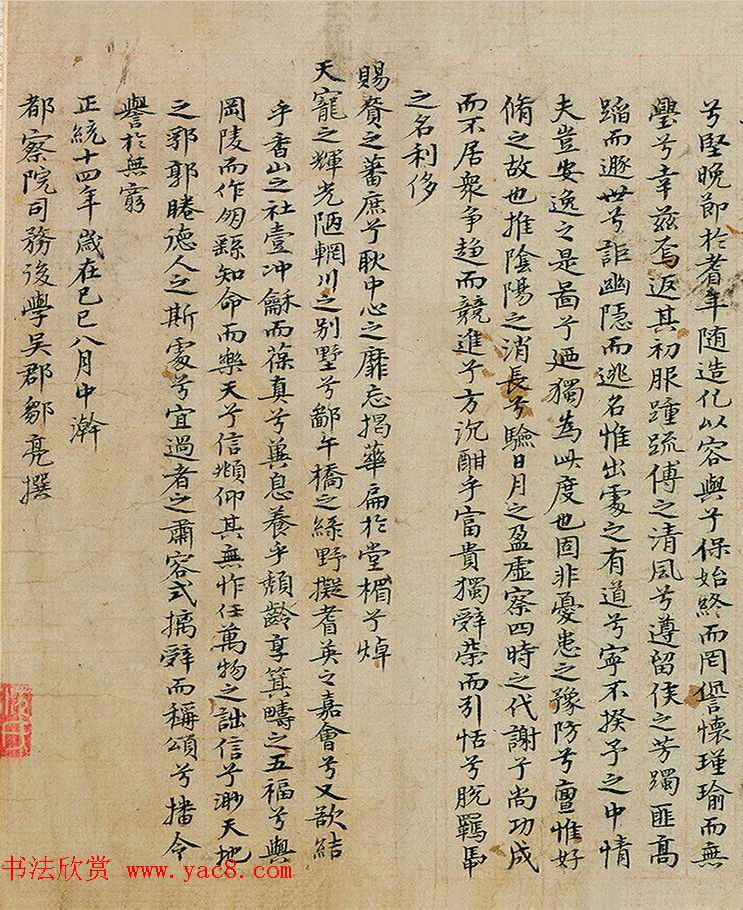 兮堅晚節於耆年随造化以容與兮保始終而罔愆懷瑾瑜而無
璺兮幸茲焉返其初服踵疏傅之清風兮遵留侯之芳躅匪高
蹈而遯世兮詎幽隱而逃名惟出處之有道兮寧不揆予之中情
夫豈安逸之是啚兮廼獨為此度也固非憂患之豫防兮亶惟好
脩之故也推陰陽之消長兮驗日月之盈虛察四時之代謝兮尚功成
而不居衆争趋而競進兮方沉酣乎富貴獨辭榮而引恬兮脱羈馽
之名利侈
賜賚之蕃庶兮耿中心之靡忘揭華扁於堂楣兮焯
天寵之輝光陋輞川之别墅兮鄙午橋之緑野擬耆英之嘉會兮又欲結
乎香山之社壹冲龢而葆真兮兾息養乎頽齡享箕疇之五福兮與
岡陵而作朋繇知命而樂天兮信頫仰其無怍任萬物之詘信兮渺天地
之郛郭睠德人之斯處兮宜過者之肅容式摛辭而稱頌兮播令
譽於無窮
正統十四年歲在己巳八月中澣
都察院司務後學吴郡鄒亮撰
书法欣赏 www.yac8.com